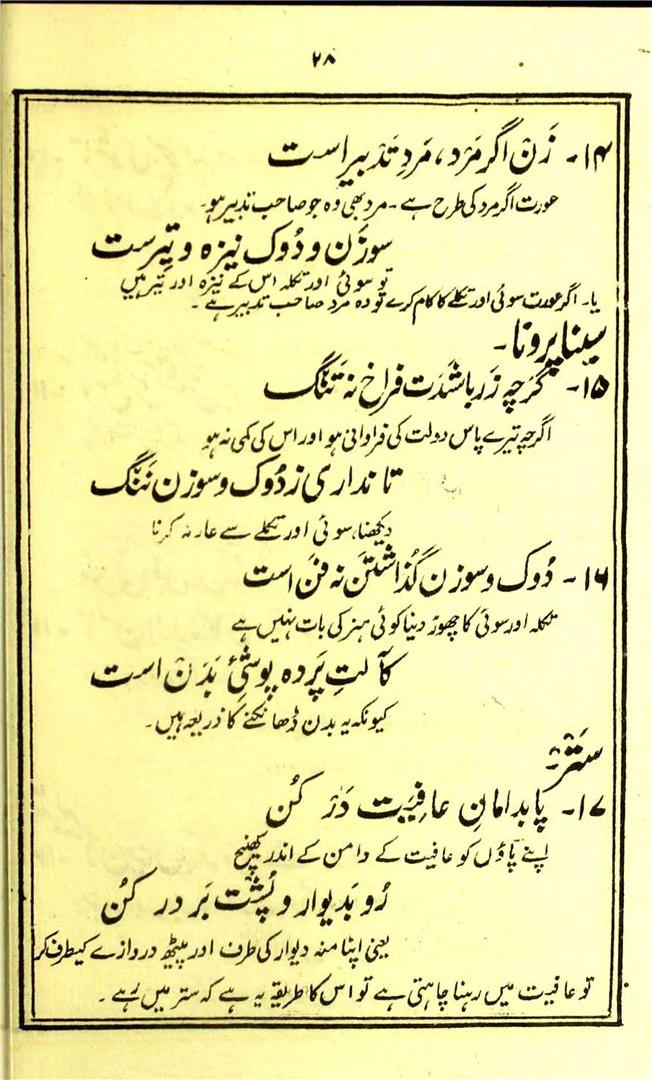 ۲۸
۱۴۔ زَنْ اگر مَرْد، مَردِ تَدبیر است
عورت اگر مرد کی طرح ہے ۔ مرد بھی وہ جو صاحب تدبیر ہو۔
سوزَن و دُوک نیزہ و تیرست
تو سوئی اور تکلہ اس کے نیزہ اور تیر ہیں
یا۔ اگر عورت سوئی اور تکلے کا کام کرے تو وہ مرد صاحب تدبیر ہے ۔
سینا پرونا۔
۱۵۔ گرچہ زَر باشَدَت فراخ نہ تَنگ
اگرچہ تیرے پاس دولت کی فراوانی ہو اور اس کی کمی نہ ہو
تا نداری ز دُوک و سوزن نَنگ
دیکھنا، سوئی اور تکلے سے عار نہ کرنا
۱۶۔ دُوک و سوزن گُذاشتَن نہ فَن است
تکلہ اور سوئی کا چھوڑ دینا کوئی ہنر کی بات نہیں ہے
کآلتِ پَردہ پوشیِٔ بَدَنْ است
کیونکہ یہ بدن ڈھانکنے کا ذریعہ ہیں۔
سَتْر۔
۱۷۔ پا بدامانِ عافِیَت دَرْ کُن
اپنے پاؤں کو عافیت کے دامن کے اندر کھینچ
رُو بدیوار و پُشْت بَر در کُن
یعنی اپنا منہ دیوار کی طرف اور پیٹھ دروازے کیطرف کر
تو عافیت میں رہنا چاہتی ہے تو اس کا طریقہ یہ ہے کہ ستر میں رہے ۔